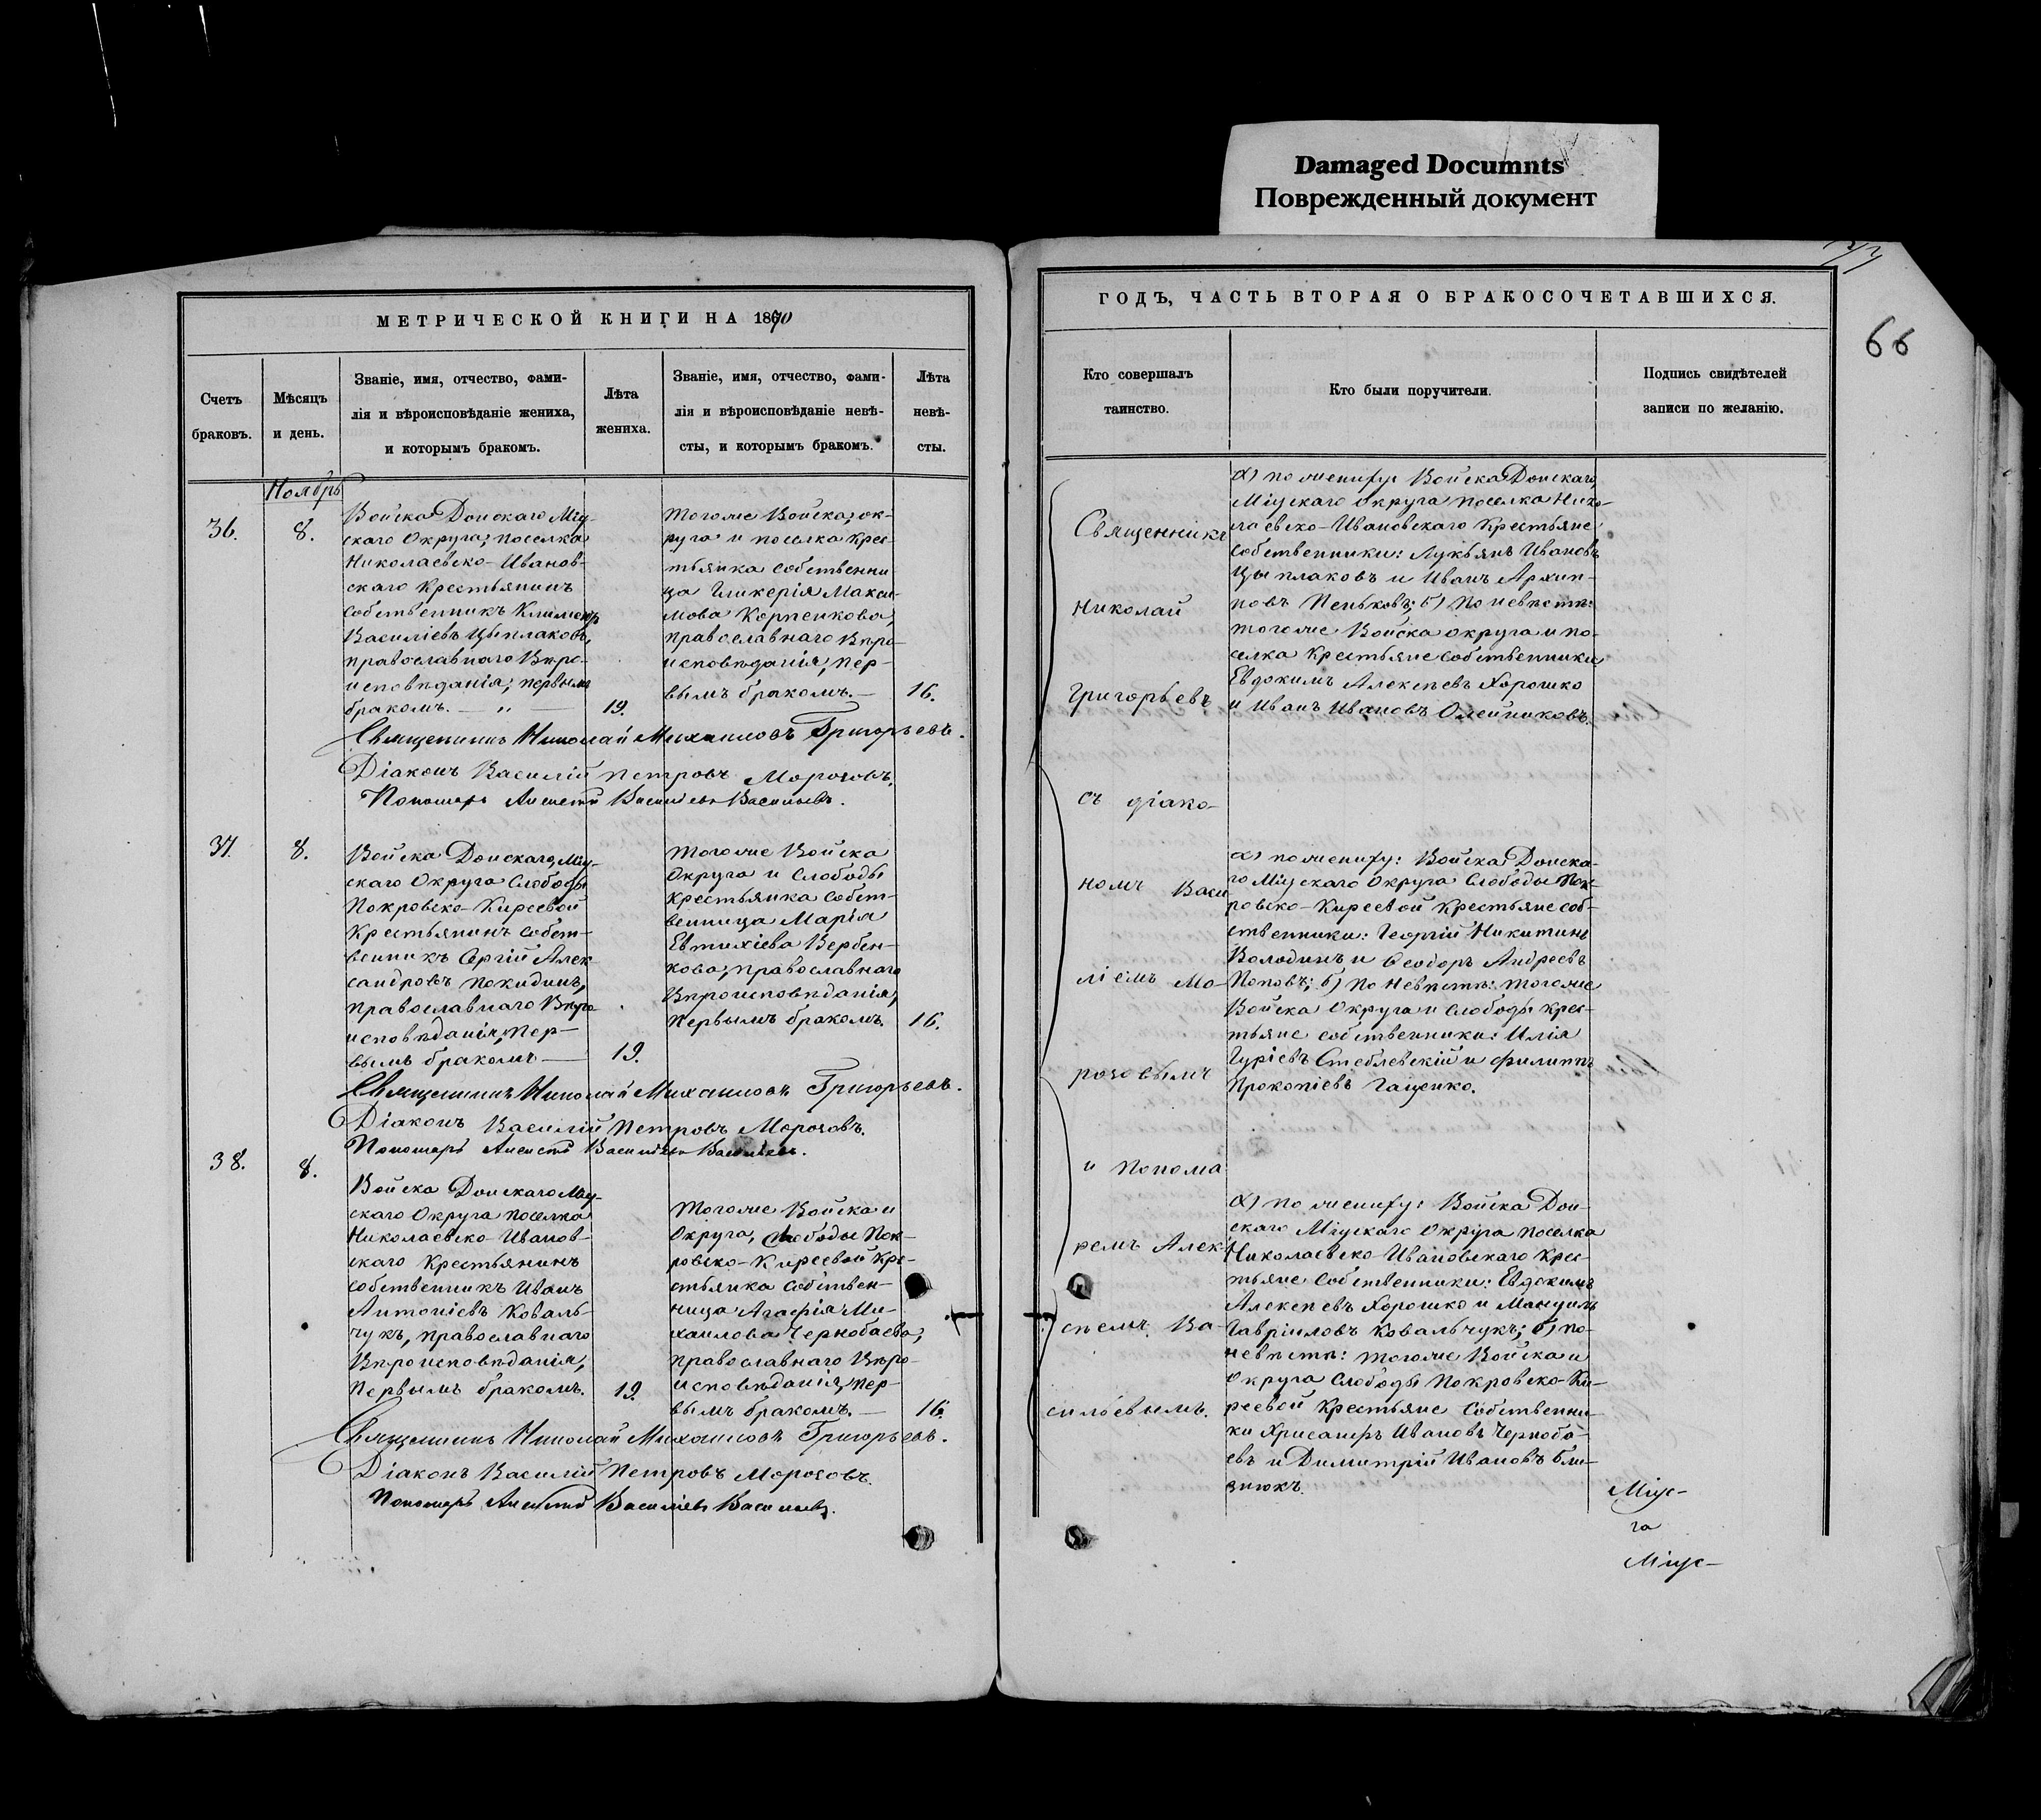 Damaged Documnts
Поврежденный документ
МЕТРИЧЕСКОЙ КНИГИ НА 1870
Счетъ
браковъ.
Мѣсяцъ
и день.
Званіе, имя, отчество, фами-
лія и вѣроисповѣданіе жениха,
и которымъ бракомъ.
Лѣта
жениха.
Званіе, имя, отчество, фами-
лія и вѣроисповѣданіе невѣ-
сты, и которымъ бракомъ.
Лѣта
невѣ-
сты.
Ноябрь
36.
8.
Войска Донскаго Міу-
скаго Округа, поселка
Николаевско-Иванов-
скаго Крестьянинъ
собственникъ Климентъ
Василіевъ Цыплаковъ,
православнаго Вѣро-
исповѣданія, первымъ
бракомъ. — „ —
19.
Тогоже Войска, ок-
руга и поселка Крес-
тьянка собственни-
ца Гликерія Макси-
мова Корпенкова,
православнаго Вѣро-
исповѣданія, пер-
вымъ бракомъ. —
16.
Священникъ Николай Михаиловъ Григорьевъ.
Діаконъ Василій Петровъ Морозовъ.
Пономарь Алексѣй Василіевъ Васильевъ.
37.
8.
Войска Донскаго, Міу-
скаго Округа Слободы
Покровско-Киреевой
Крестьянинъ собст-
венникъ Сергій Алек-
сандровъ Покидинъ,
православнаго Вѣро
исповѣданія, пер-
вымъ бракомъ —
19.
Тогоже Войска
Округа и Слободы
Крестьянка собст-
венница Марія
Евтихіева Вербен-
кова, православнаго
Вѣроисповѣданія,
первымъ бракомъ.
16.
Священникъ Николай Михаиловъ Григорьевъ.
Діаконъ Василій Петровъ Морозовъ.
Пономарь Алексѣй Василіевъ Васильевъ.
38.
8.
Войска Донскаго Міу-
скаго Округа поселка
Николаевско-Иванов-
скаго Крестьянинъ
собственникъ Иванъ
Антоніевъ Коваль-
чукъ, православнаго
Вѣроисповѣданія,
первымъ бракомъ.
19.
Тогоже Войска и
Округа, Слободы Пок-
ровско-Киреевой Кре-
стьянка собствен-
ница Агафія Ми-
хаилова Чернобаева,
православнаго Вѣро-
исповѣданія, пер-
вымъ бракомъ. —
16.
Священникъ Николай Михаиловъ Григорьевъ.
Діаконъ Василій Петровъ Морозовъ.
Пономарь Алексѣй Василіевъ Васильевъ.
ГОДЪ, ЧАСТЬ ВТОРАЯ О БРАКОСОЧЕТАВШИХСЯ.
66
Кто совершалъ
таинство.
Кто были поручители.
Подпись свидѣтелей
записи по желанію.
Священникъ
Николай
Григорьевъ
съ діако-
номъ Васи-
ліемъ Мо-
розовымъ
и понома
ремъ Алек-
сѣемъ Ва-
сильевымъ.
а) по жениху: Войска Донскаго,
Міускаго округа поселка Нико-
лаевско-Ивановскаго Крестьяне
собственники: Лукьянъ Ивановъ
Цыплаковъ и Иванъ Архип-
повъ Пеньковъ; б) по невѣстѣ:
тогоже Войска округа и по-
селка Крестьяне собственники
Евдокимъ Алексѣевъ Хорошко
и Иванъ Ивановъ Олейниковъ.
а) по жениху: Войска Донска-
го Міускаго Округа Слободы Пок-
ровско-Киреевой Крестьяне соб-
ственники: Георгій Никитинъ
Володинъ и Ѳеодоръ Андреевъ
Поповъ; б) по невѣстѣ: тогоже
Войска Округа и Слободы крес-
тьяне собственники: Илія
Гуріевъ Стеблевскій и Филиппъ
Прокопіевъ Гащенко.
а) по жениху: Войска Дон-
скаго Міускаго Округа поселка
Николаевско-Ивановскаго Крес-
тьяне собственники: Евдокимъ
Алексѣевъ Хорошко и Мануилъ
Гавріиловъ Ковальчукъ; б) по-
невѣстѣ: тогоже Войска и
Округа Слободы Покровско-Ки-
реевой Крестьяне собственни-
ки Хрисанфъ Ивановъ Черноба-
евъ и Димитрій Ивановъ Бли-
знюкъ.
Міус-
га
Міус-